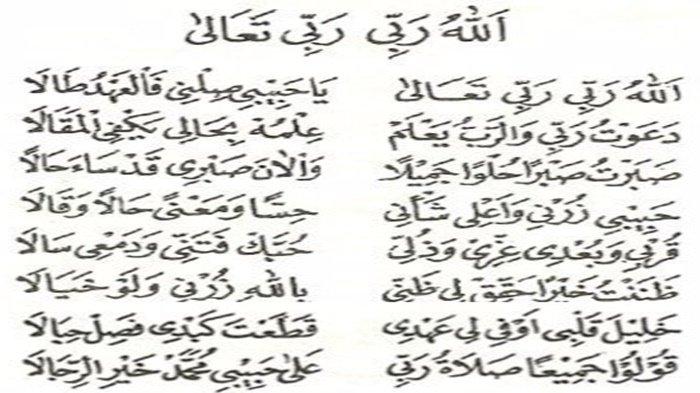 اَللهُ رَبِّي رَبِّي تَعَالٰى
اَللهُ رَبِّي رَبِّي تَعَـالٰى يَا حَبِيْبِي صِلْنِي فَالْعَهْدُ طَالَا
دَعَوْتُ رَبِّي وَالرَّبُّ يَعْلَمْ عِلْمُهْ بِحَالِي يَكْفِي الْمَقَالَا
صَبَرْتُ صَبْرًا حُلْوًا جَمِيْلًا وَاْلآنَ صَبْرِي قَدْ سَاءَ حَالًا
حَبِيْبِي زُرْنِي وَاَعْلِى شَأْنِي حِسًّا وَمَعْنًى حَالًا وَقَالَا
قُرْبِي وَبُعْدِى عِزِّيْ وَذُلِّيْ حُبُّكَ فَتَنِّي وَدَمْعِى سَالَا
ظَنَنْتُ خَيْرًا حَقِّقْ لِي ظَنِّي بِاللهِ زُرْنِي وَلَوْ خَيَالَا
خَلِيْلَ قَلْبِى اَوْفِي لِي عَهْدِى قَطَّعْتَ كَبِدِى فَصِلْ حِبَالَا
قُوْلُوْا جَمِيْعًا صَلَاةُ رَبِّي عَلٰى حَبِيْبِيْ مُحَمَّدْ خَيْرِ الرِّجَالَا